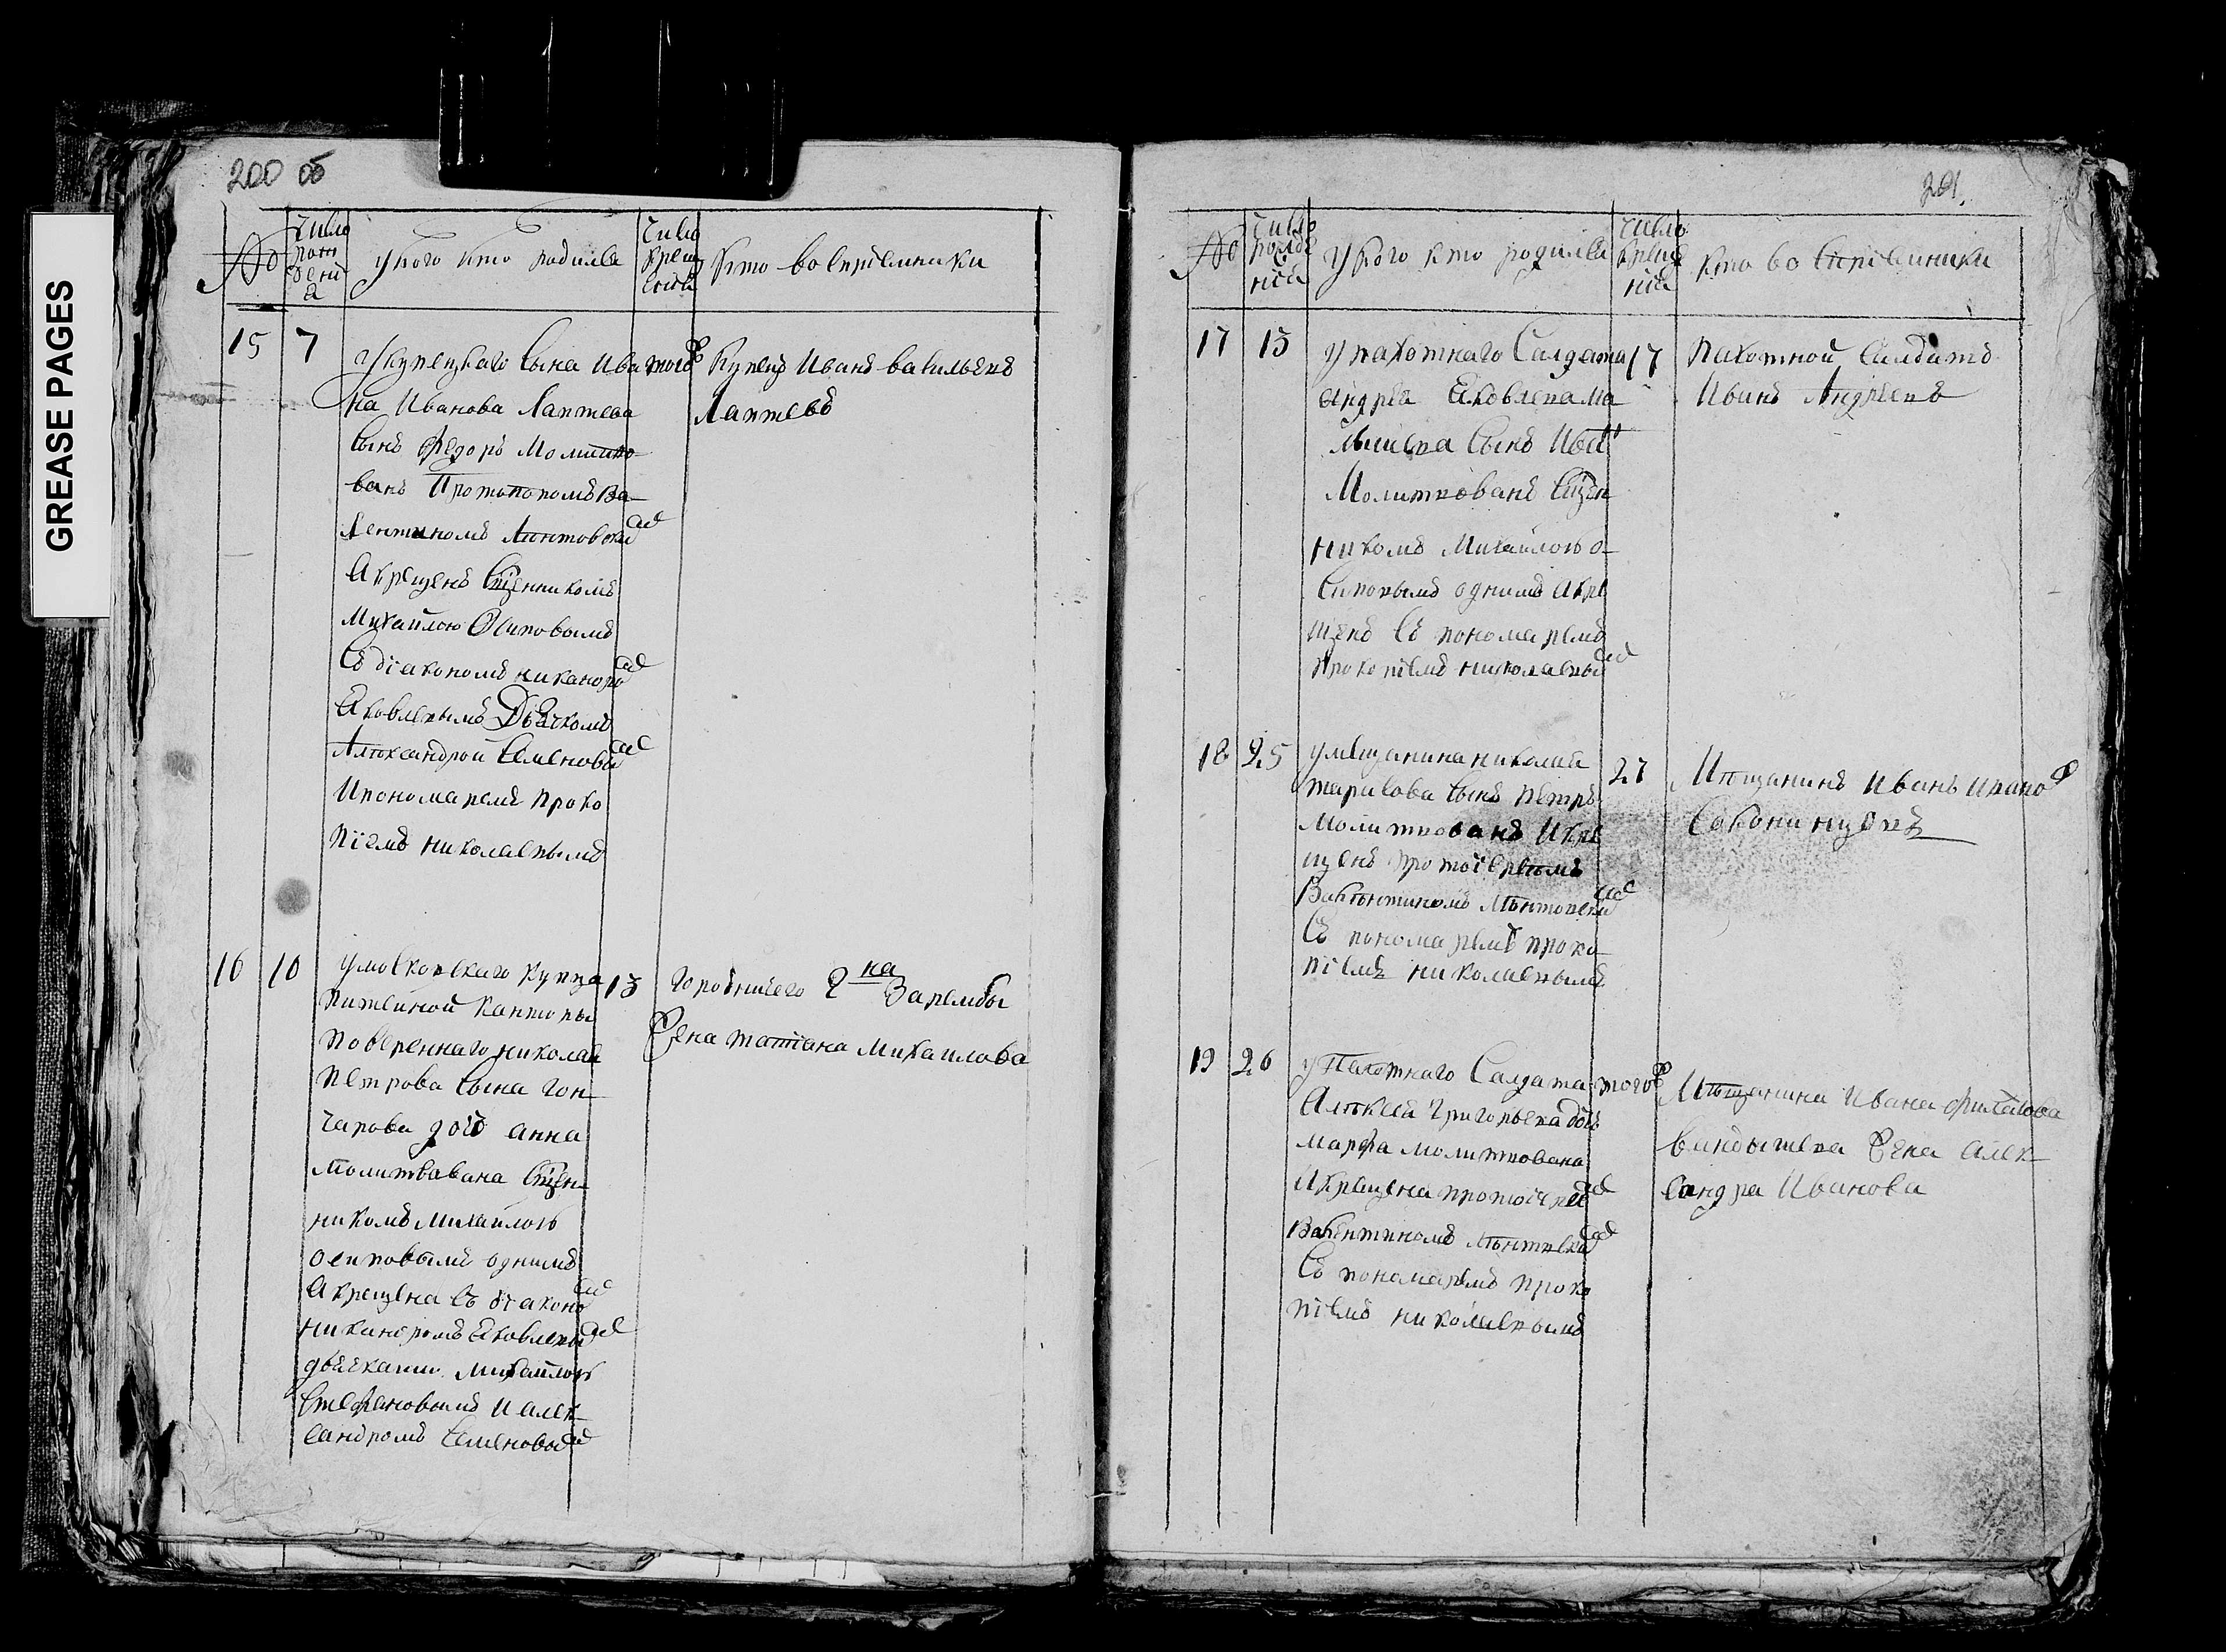 GREASE PAGES
200 об
№
число рож дени а
у кого кто родился
число крещ ения
кто восприемники
15
7
у купецкаго сына Ива
на Иванова Лаптева
сынъ федоръ Молитво
ванъ Протопопомъ Ва
лентиномъ
а крещенъ сщенникомъ
Михайлою Осиповымъ
съ дiакономъ никаноро
Яковлевымъ Дьячкомъ
Александрой Семеновы
и пономаремъ проко
пiемъ николаевымъ
тогож
купецъ Иванъ васильевъ
Лаптевъ
16
10
у московскаго купца
питейной канторы
повереннаго николая
петрова сына гон
чарова дочь анна
молитвавана сщен
никомъ Михайлою
осиповымъ однимъ
а крещена съ дiаконо
никаноромъ Яковлевы
дьячками Михайлою
стефановымъ и алек
сандромъ семеновы
13
городничего г на Зарембы
жена татiана Михаилова
201
№
число рожде нiя
у кого кто родился
число креще нiя
кто во спрiемники
17
13
у пахотнаго Салдата
андрея Яковлева
сынъ Ива
Молитвованъ сщен
никомъ Михайлою о
сиповымъ однимъ а кре
щенъ съ пономаремъ
прокопiемъ николаевы
17
пахотной салдатъ
Иванъ Андреевъ
18
25
у мещанина николая
сынъ петръ
молитвованъ и кре
щенъ протоiереемъ
Валентиномъ
съ пономаремъ проко
пiемъ николаевымъ
27
Мещанинъ Иванъ Ивано
19
26
у пахотнаго Салдата
Алексея григорьева дочь
марфа молитвована
и крещена протоiерее
Валентиномъ
съ пономаремъ проко
пiемъ николаевымъ
тогож
Мещанина Ивана
жена алек
сандра Иванова